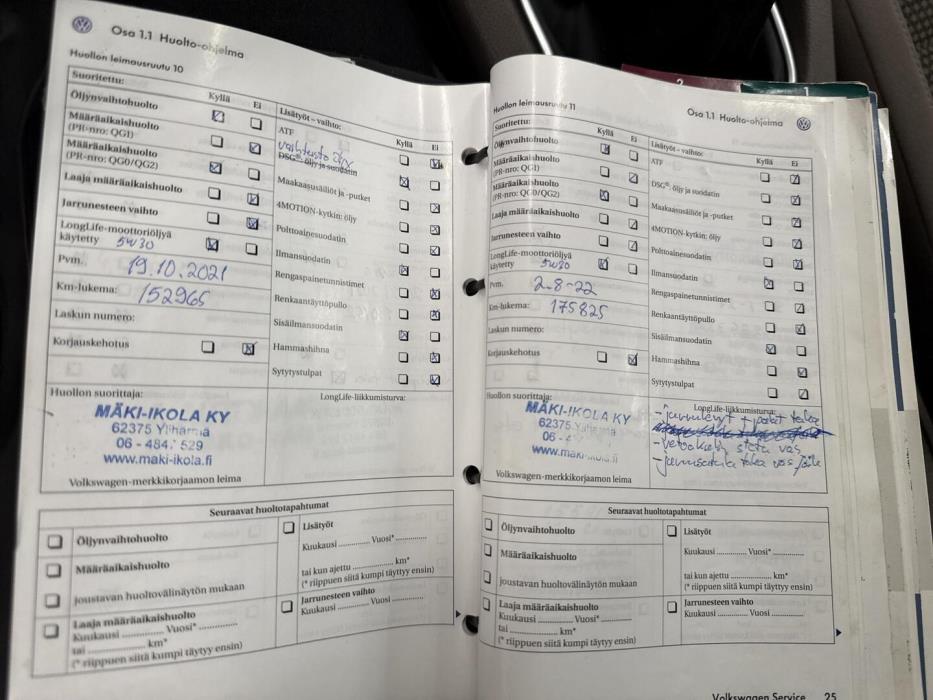 Osa 1.1 Huolto-ohjelma
Huollon leimausruutu 10
Suoritettu:
Kyllä Ei
Öljynvaihtohuolto
Määräaikaishuolto
(PR-nro: QG1)
Määräaikaishuolto
(PR-nro: QG0/QG2)
Laaja määräaikaishuolto
Jarrunesteen vaihto
LongLife-moottoriöljyä
käytetty 5W30
Pvm. 19.10.2021
Km-lukema: 152965
Laskun numero:
Korjauskehotus
Lisätyöt – vaihto:
Kyllä Ei
ATF
vaihteisto öljy
DSG®: öljy ja suodatin
Maakaasusäiliöt ja -putket
4MOTION-kytkin: öljy
Polttoainesuodatin
Ilmansuodatin
Rengaspainetunnistimet
Renkaantäyttöpullo
Sisäilmansuodatin
Hammashihna
Sytytystulpat
Huollon suorittaja:
MÄKI-IKOLA KY
62375 Ylihärmä
06 - 484 529
www.maki-ikola.fi
Volkswagen-merkkikorjaamon leima
LongLife-liikkumisturva:
Seuraavat huoltotapahtumat
Öljynvaihtohuolto
Määräaikaishuolto
joustavan huoltovälinäytön mukaan
Laaja määräaikaishuolto
Kuukausi .............. Vuosi* ..............
tai .............. km*
(* riippuen siitä kumpi täytyy ensin)
Lisätyöt
Kuukausi .............. Vuosi* ..............
tai kun ajettu .............. km*
(* riippuen siitä kumpi täytyy ensin)
Jarrunesteen vaihto
Kuukausi .............. Vuosi ..............
Huollon leimausruutu 11
Osa 1.1 Huolto-ohjelma
Suoritettu:
Kyllä Ei
Öljynvaihtohuolto
Määräaikaishuolto
(PR-nro: QG1)
Määräaikaishuolto
(PR-nro: QG0/QG2)
Laaja määräaikaishuolto
Jarrunesteen vaihto
LongLife-moottoriöljyä
käytetty 5W30
Pvm. 2-8-22
Km-lukema: 175825
Laskun numero:
Korjauskehotus
Lisätyöt – vaihto:
Kyllä Ei
ATF
DSG®: öljy ja suodatin
Maakaasusäiliöt ja -putket
4MOTION-kytkin: öljy
Polttoainesuodatin
Ilmansuodatin
Rengaspainetunnistimet
Renkaantäyttöpullo
Sisäilmansuodatin
Hammashihna
Sytytystulpat
Huollon suorittaja:
MÄKI-IKOLA KY
62375 Ylihärmä
06 - 4
www.maki-ikola.fi
Volkswagen-merkkikorjaamon leima
LongLife-liikkumisturva:
- jarrulevyt + palat taka
vas
- jarrusatula taka vas
Seuraavat huoltotapahtumat
Öljynvaihtohuolto
Määräaikaishuolto
joustavan huoltovälinäytön mukaan
Laaja määräaikaishuolto
Kuukausi .............. Vuosi* ..............
tai .............. km*
(* riippuen siitä kumpi täytyy ensin)
Lisätyöt
Kuukausi .............. Vuosi* ..............
tai kun ajettu .............. km*
(* riippuen siitä kumpi täytyy ensin)
Jarrunesteen vaihto
Kuukausi .............. Vuosi ..............
Volkswagen Service 25